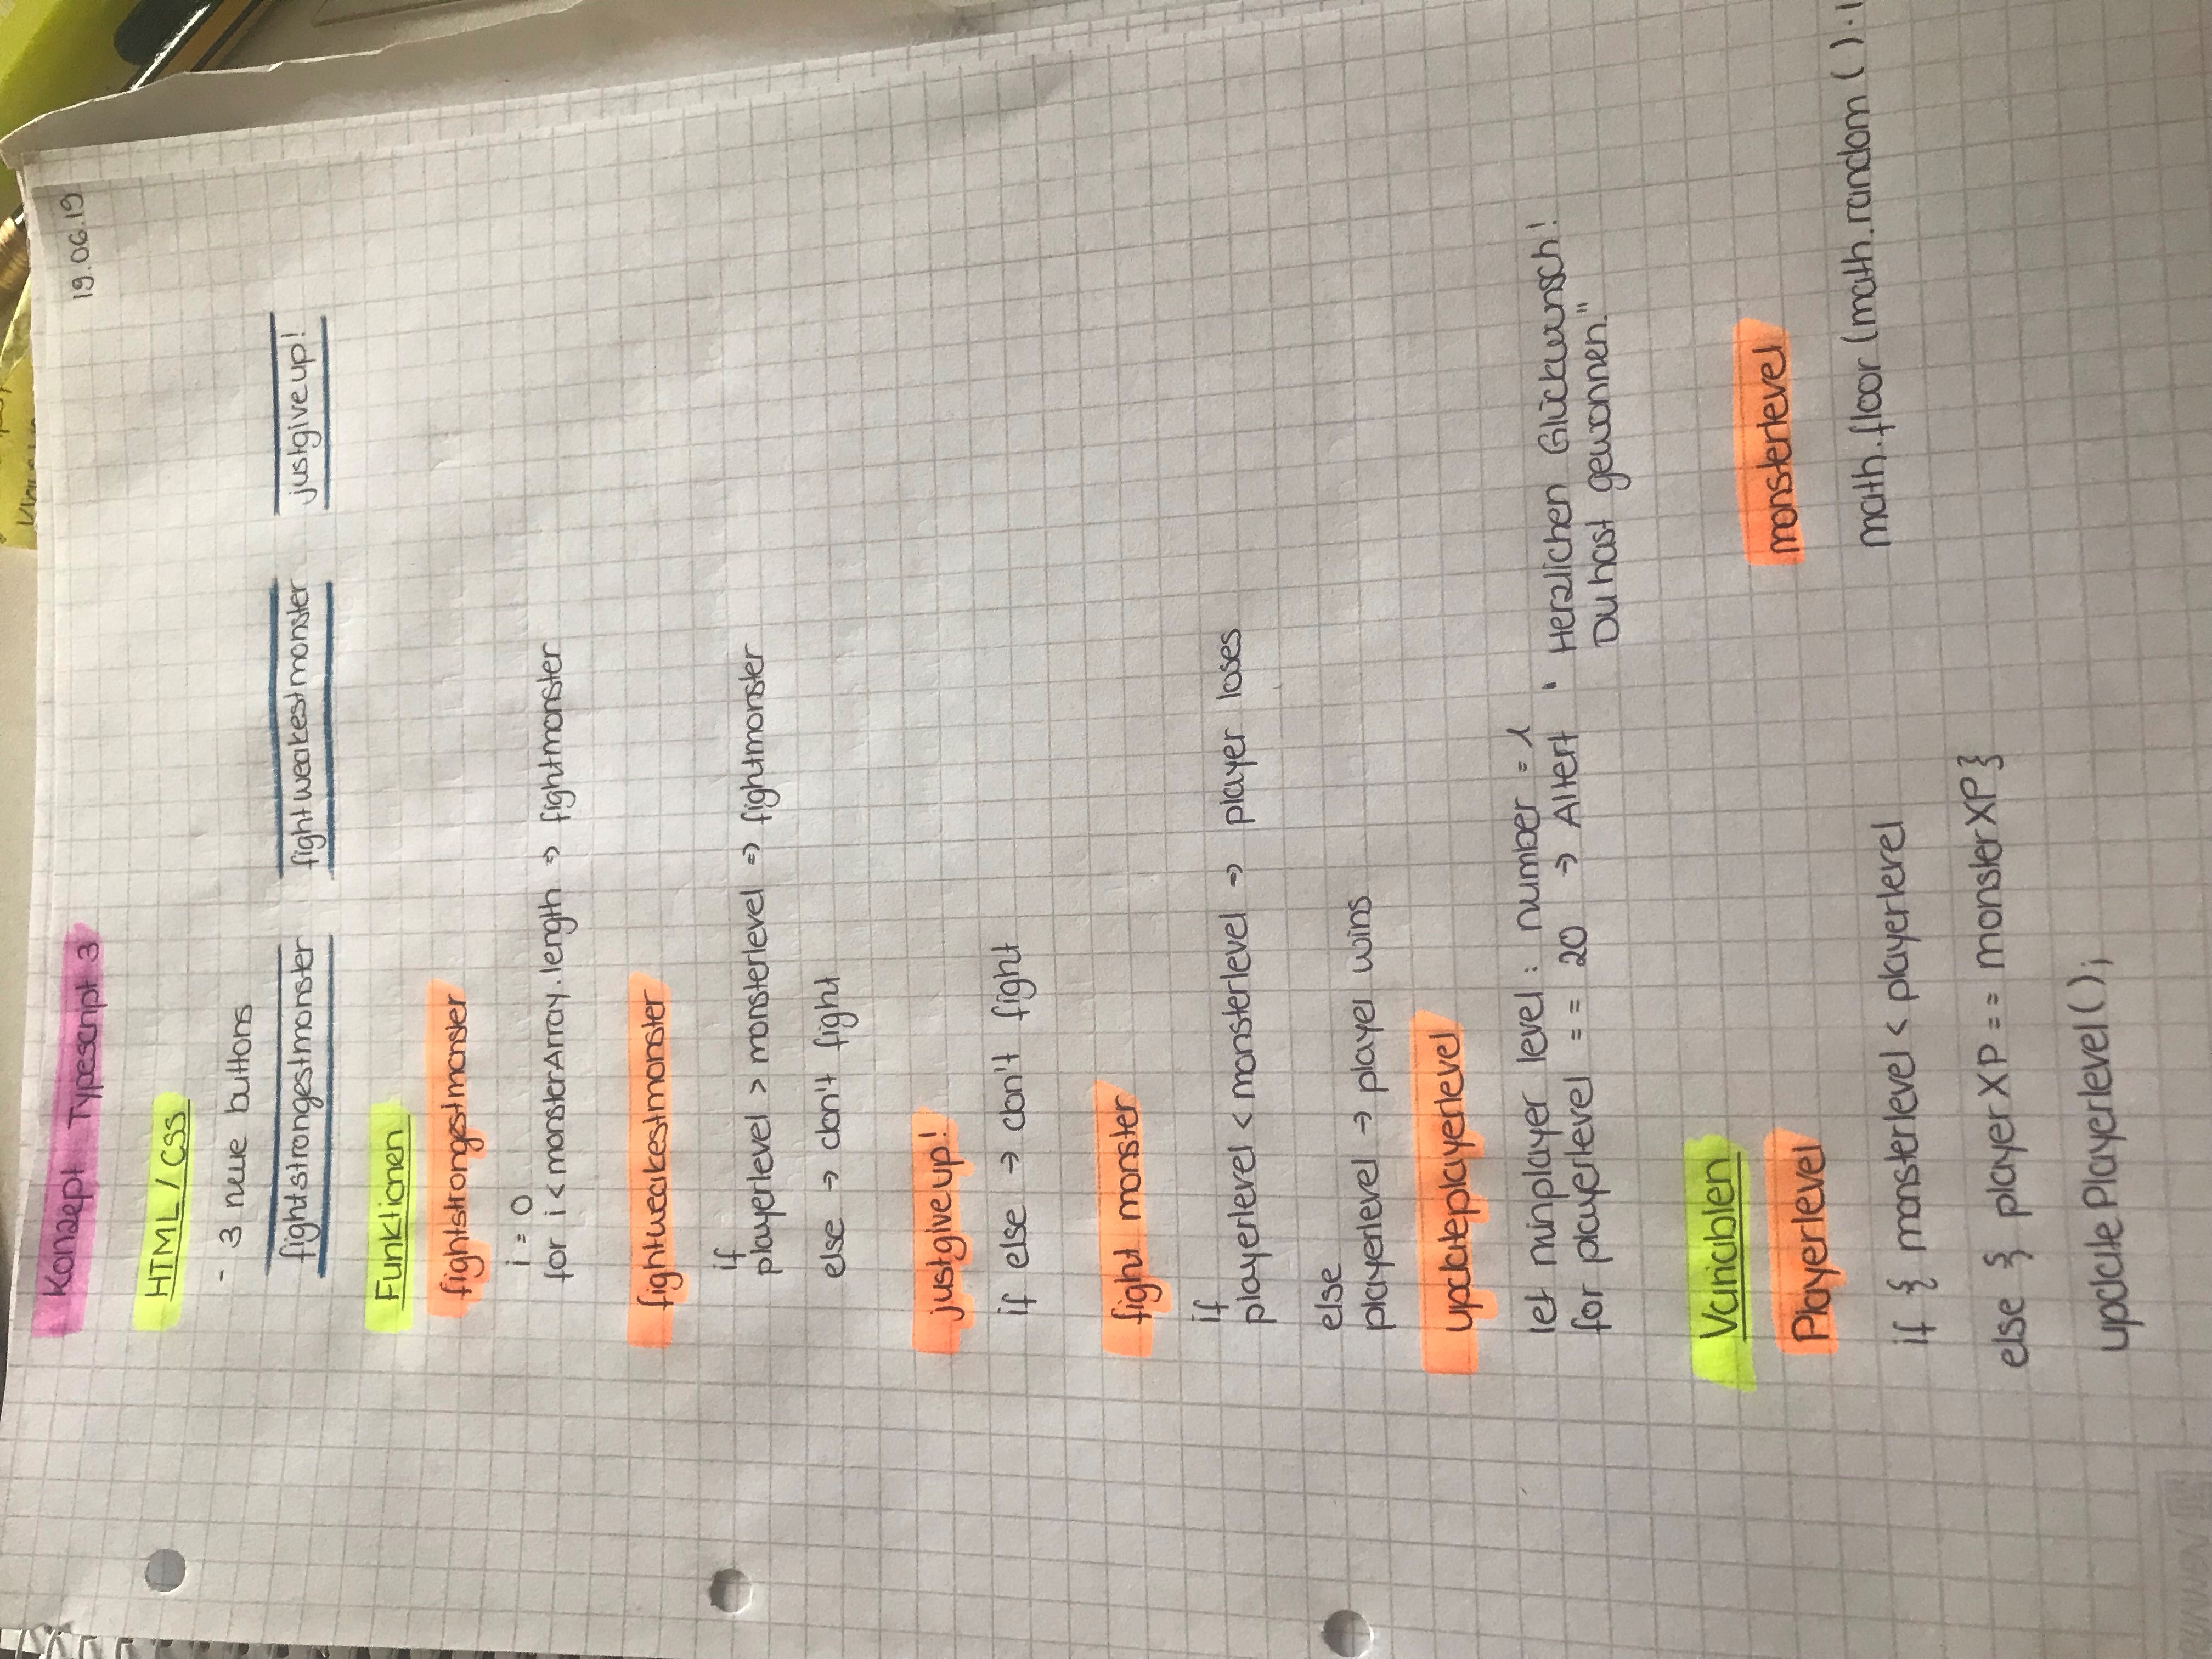 19.06.19
Konzept Typescript 3
HTML / CSS
- 3 neue buttons
fightstrongestmonster fightweakestmonster justgiveup!
Funktionen
fightstrongestmonster
i = 0
for i < monsterArray.length => fightmonster
fightweakestmonster
if
playerlevel > monsterlevel => fightmonster
else -> don't fight
justgiveup!
if else -> don't fight
fight monster
if
playerlevel < monsterlevel => player loses
else
playerlevel -> player wins
updateplayerlevel
let minplayer level : number = 1
for playerlevel == 20 -> Altert " Herzlichen Glückwunsch!
Du hast gewonnen."
Variablen
Playerlevel
if { monsterlevel < playerlevel
else } playerXP == monsterXP}
update Playerlevel();
monsterlevel
math.floor (math.random ( ) ·